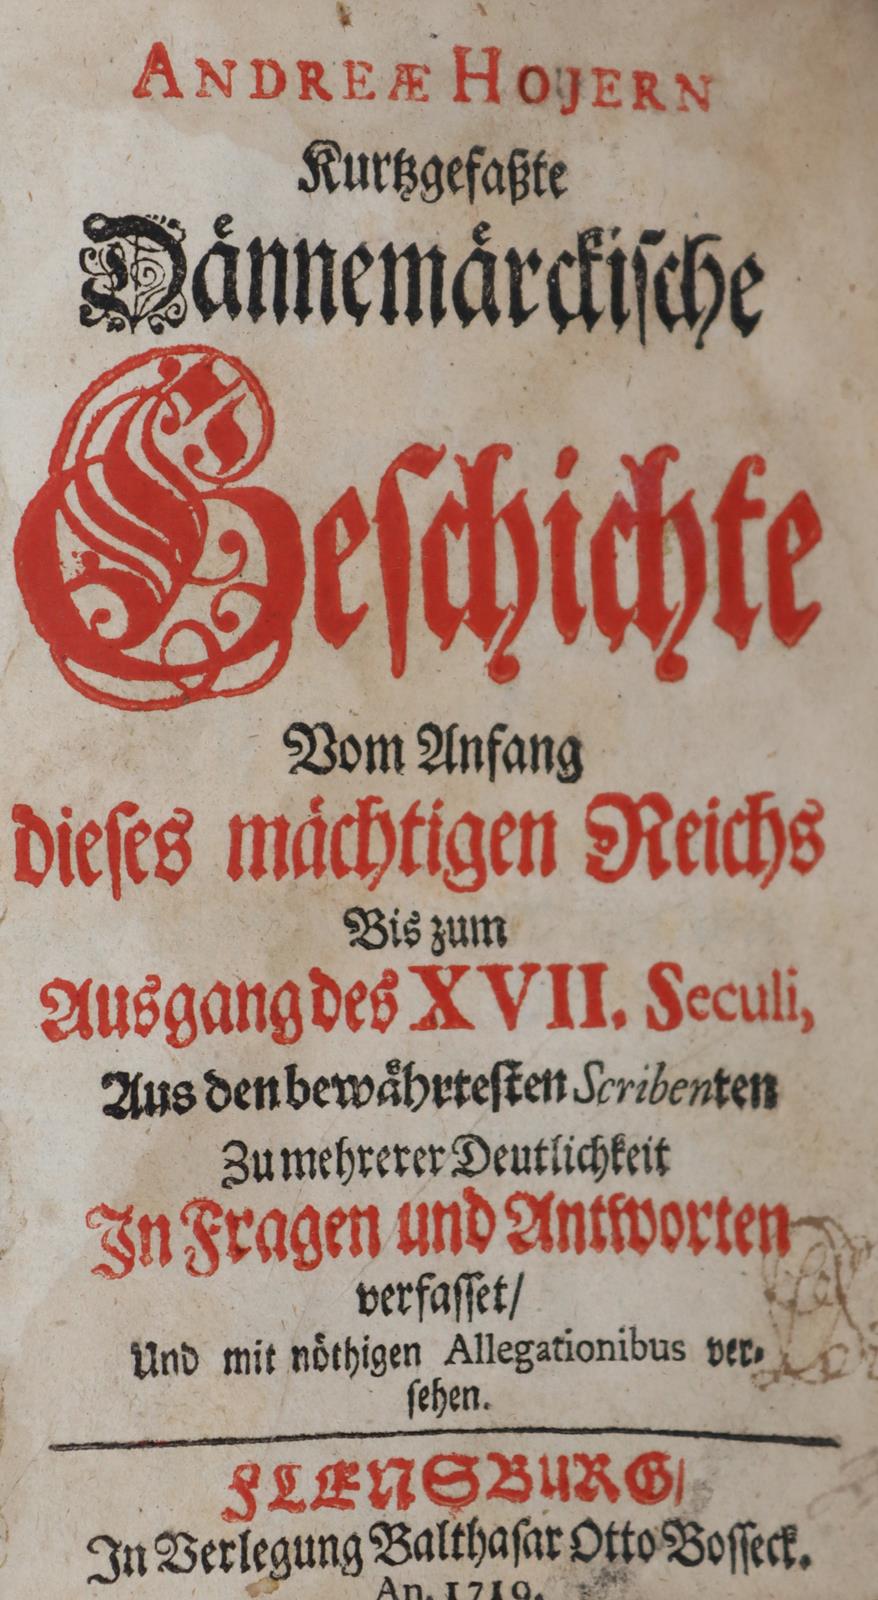 ANDREÆ HOJERN
Kurtzgefaßte
Dännemärckische
Geschichte
Vom Anfang
dieses mächtigen Reichs
Bis zum
Ausgang des XVII. Seculi,
Aus den bewährtesten Scribenten
Zu mehrerer Deutlichkeit
In Fragen und Antworten
verfasset/
Und mit nöthigen Allegationibus ver-
sehen.
FLENSBURG/
In Verlegung Balthasar Otto Bosseck.
An. 1719.